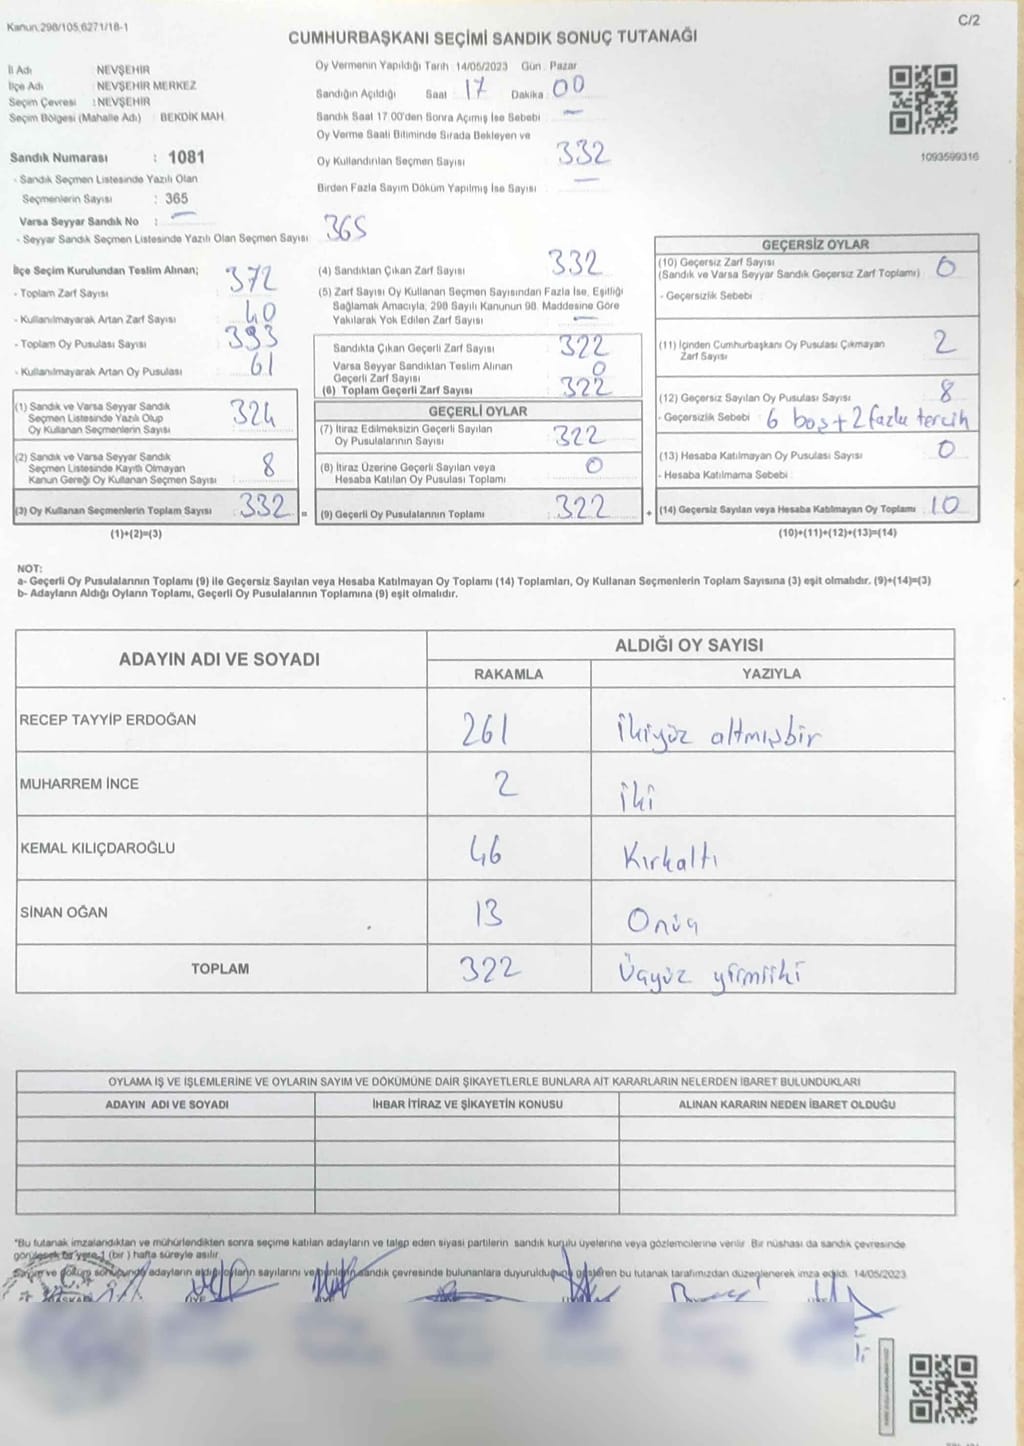 Kanun:298/105,6271/18-1
C/2
CUMHURBAŞKANI SEÇİMİ SANDIK SONUÇ TUTANAĞI
İl Adı : NEVŞEHİR
İlçe Adı : NEVŞEHİR MERKEZ
Seçim Çevresi : NEVŞEHİR
Seçim Bölgesi (Mahalle Adı) : BEKDİK MAH.
Oy Vermenin Yapıldığı Tarih 14/05/2023 Gün : Pazar
Sandığın Açıldığı Saat 17 Dakika : 00
Sandık Saat 17:00'den Sonra Açımış İse Sebebi —
Oy Verme Saati Bitiminde Sırada Bekleyen ve
Oy Kullandırılan Seçmen Sayısı 332
Birden Fazla Sayım Döküm Yapılmış İse Sayısı —
1093599316
Sandık Numarası : 1081
- Sandık Seçmen Listesinde Yazılı Olan
Seçmenlerin Sayısı : 365
Varsa Seyyar Sandık No : —
- Seyyar Sandık Seçmen Listesinde Yazılı Olan Seçmen Sayısı 365
İlçe Seçim Kurulundan Teslim Alınan;
- Toplam Zarf Sayısı 372
- Kullanılmayarak Artan Zarf Sayısı 40
- Toplam Oy Pusulası Sayısı 393
- Kullanılmayarak Artan Oy Pusulası 61
(1) Sandık ve Varsa Seyyar Sandık
Seçmen Listesinde Yazılı Olup
Oy Kullanan Seçmenlerin Sayısı 324
(2) Sandık ve Varsa Seyyar Sandık
Seçmen Listesinde Kayıtlı Olmayan
Kanun Gereği Oy Kullanan Seçmen Sayısı 8
(3) Oy Kullanan Seçmenlerin Toplam Sayısı 332 =
(1)+(2)=(3)
(4) Sandıktan Çıkan Zarf Sayısı 332
(5) Zarf Sayısı Oy Kullanan Seçmen Sayısından Fazla İse, Eşitliği
Sağlamak Amacıyla, 298 Sayılı Kanunun 98. Maddesine Göre
Yakılarak Yok Edilen Zarf Sayısı —
Sandıkta Çıkan Geçerli Zarf Sayısı 322
Varsa Seyyar Sandıktan Teslim Alınan
Geçerli Zarf Sayısı 0
(6) Toplam Geçerli Zarf Sayısı 322
GEÇERLİ OYLAR
(7) İtiraz Edilmeksizin Geçerli Sayılan
Oy Pusulalarının Sayısı 322
(8) İtiraz Üzerine Geçerli Sayılan veya
Hesaba Katılan Oy Pusulası Toplamı 0
(9) Geçerli Oy Pusulalarının Toplamı : 322 +
GEÇERSİZ OYLAR
(10) Geçersiz Zarf Sayısı
(Sandık ve Varsa Seyyar Sandık Geçersiz Zarf Toplamı) 0
- Geçersizlik Sebebi :
(11) İçinden Cumhurbaşkanı Oy Pusulası Çıkmayan
Zarf Sayısı 2
(12) Geçersiz Sayılan Oy Pusulası Sayısı 8
- Geçersizlik Sebebi : 6 boş + 2 fazla tercih
(13) Hesaba Katılmayan Oy Pusulası Sayısı 0
- Hesaba Katılmama Sebebi :
(14) Geçersiz Sayılan veya Hesaba Katılmayan Oy Toplamı : 10
(10)+(11)+(12)+(13)=(14)
NOT:
a- Geçerli Oy Pusulalarının Toplamı (9) ile Geçersiz Sayılan veya Hesaba Katılmayan Oy Toplamı (14) Toplamları, Oy Kullanan Seçmenlerin Toplam Sayısına (3) eşit olmalıdır. (9)+(14)=(3)
b- Adayların Aldığı Oyların Toplamı, Geçerli Oy Pusulalarının Toplamına (9) eşit olmalıdır.
ADAYIN ADI VE SOYADI
ALDIĞI OY SAYISI
RAKAMLA YAZIYLA
RECEP TAYYİP ERDOĞAN 261 İkiyüz altmışbir
MUHARREM İNCE 2 İki
KEMAL KILIÇDAROĞLU 46 Kırkaltı
SİNAN OĞAN 13 Onüç
TOPLAM 322 Üçyüz yirmiiki
OYLAMA İŞ VE İŞLEMLERİNE VE OYLARIN SAYIM VE DÖKÜMÜNE DAİR ŞİKAYETLERLE BUNLARA AİT KARARLARIN NELERDEN İBARET BULUNDUKLARI
ADAYIN ADI VE SOYADI İHBAR İTİRAZ VE ŞİKAYETİN KONUSU ALINAN KARARIN NEDEN İBARET OLDUĞU
*Bu tutanak imzalandıktan ve mühürlendikten sonra seçime katılan adayların ve talep eden siyasi partilerin sandık kurulu üyelerine veya gözlemcilerine verilir. Bir nüshası da sandık çevresinde
görülecek bir yere 1 (bir ) hafta süreyle asılır.
Sayım ve döküm sonucunda adayların aldığı oyların sayılarını ve bunların sandık çevresinde bulunanlara duyurulduğunu gösteren bu tutanak tarafımızdan düzenlenerek imza edildi. 14/05/2023